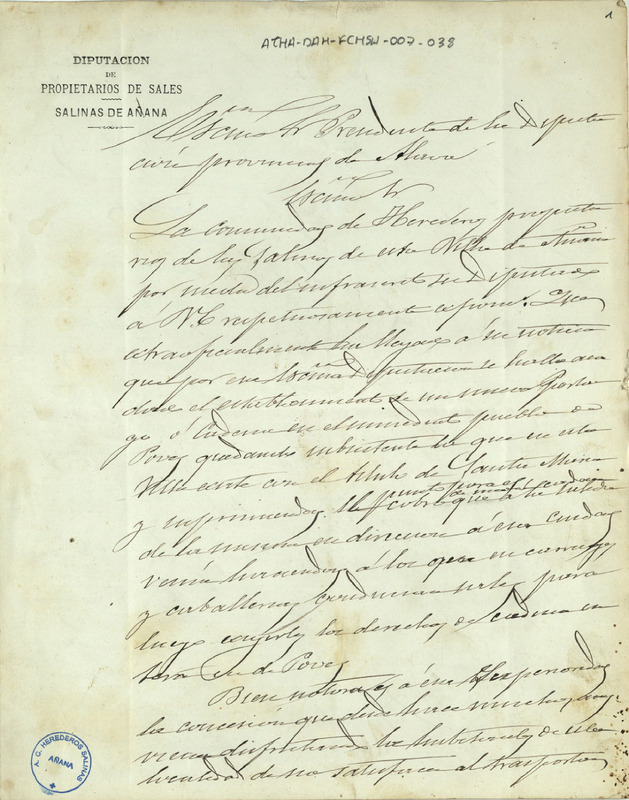 1
ATHA-DAH-FCHSA-007-038
DIPUTACION
DE
PROPIETARIOS DE SALES
SALINAS DE AÑANA
Excmo Sr Presidente de la Diputa
ción provincial de Alava
Excmo Sr
La comunidad de Herederos propieta
rios de las Salinas de esta Villa de Añana
por medio del infrascrito su Diputado
á V.E. respetuosamente expone: Que
extraoficialmente ha llegado á su noticia
que por esa Excma Diputacion se halla acor
dado el establecimiento de un nuevo Porta
go ó Cadena en el inmediato pueblo de
Poves quedando subsistente la que en esta
Villa existe con el título de Santa
y suprimiendo el cobro que á la
de la misma en direccion á esa Ciudad
venia haciendo á los que en carruajes
y caballerias conducian sales para
luego los derechos de cadena en
de Poves
Bien notorio es á esa Corporacion
la concesion que desde hace muchos años
vienen disfrutando los naturales de esta
localidad de no satisfacer al trasportar
A. C. HEREDEROS SALINAS
AÑANA